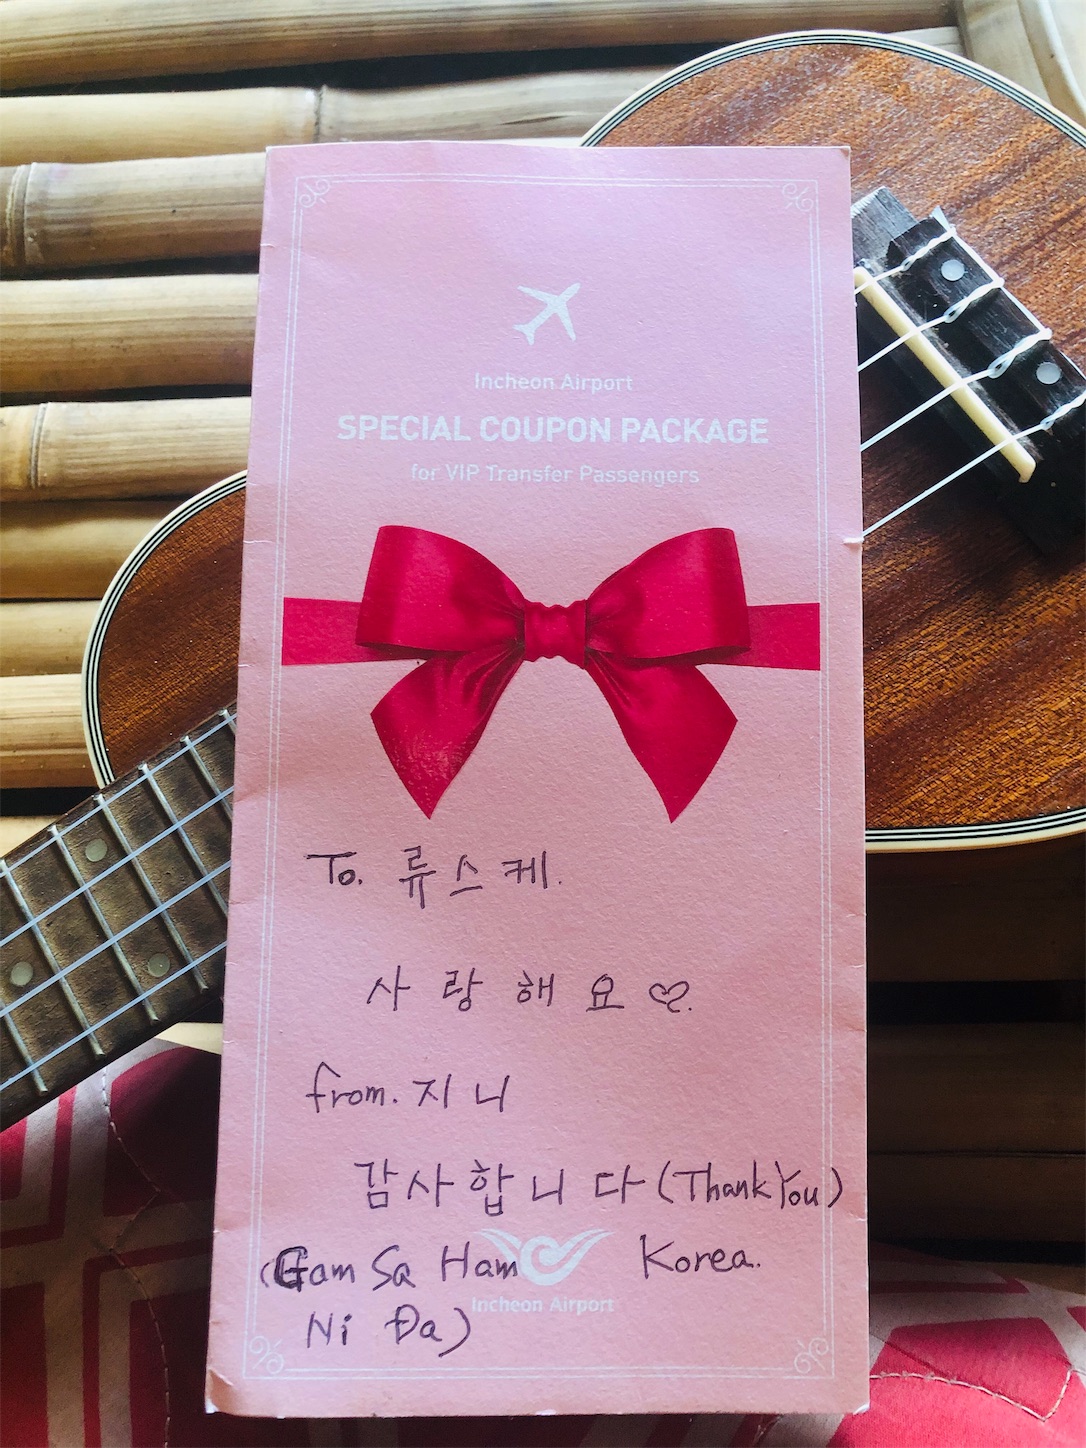 Incheon Airport
SPECIAL COUPON PACKAGE
for VIP Transfer Passengers
To. 류스케.
사랑해요♡.
from. 지니
감사합니다(Thank You)
(Gam Sa Ham Korea.
Incheon Airport
Ni Da)